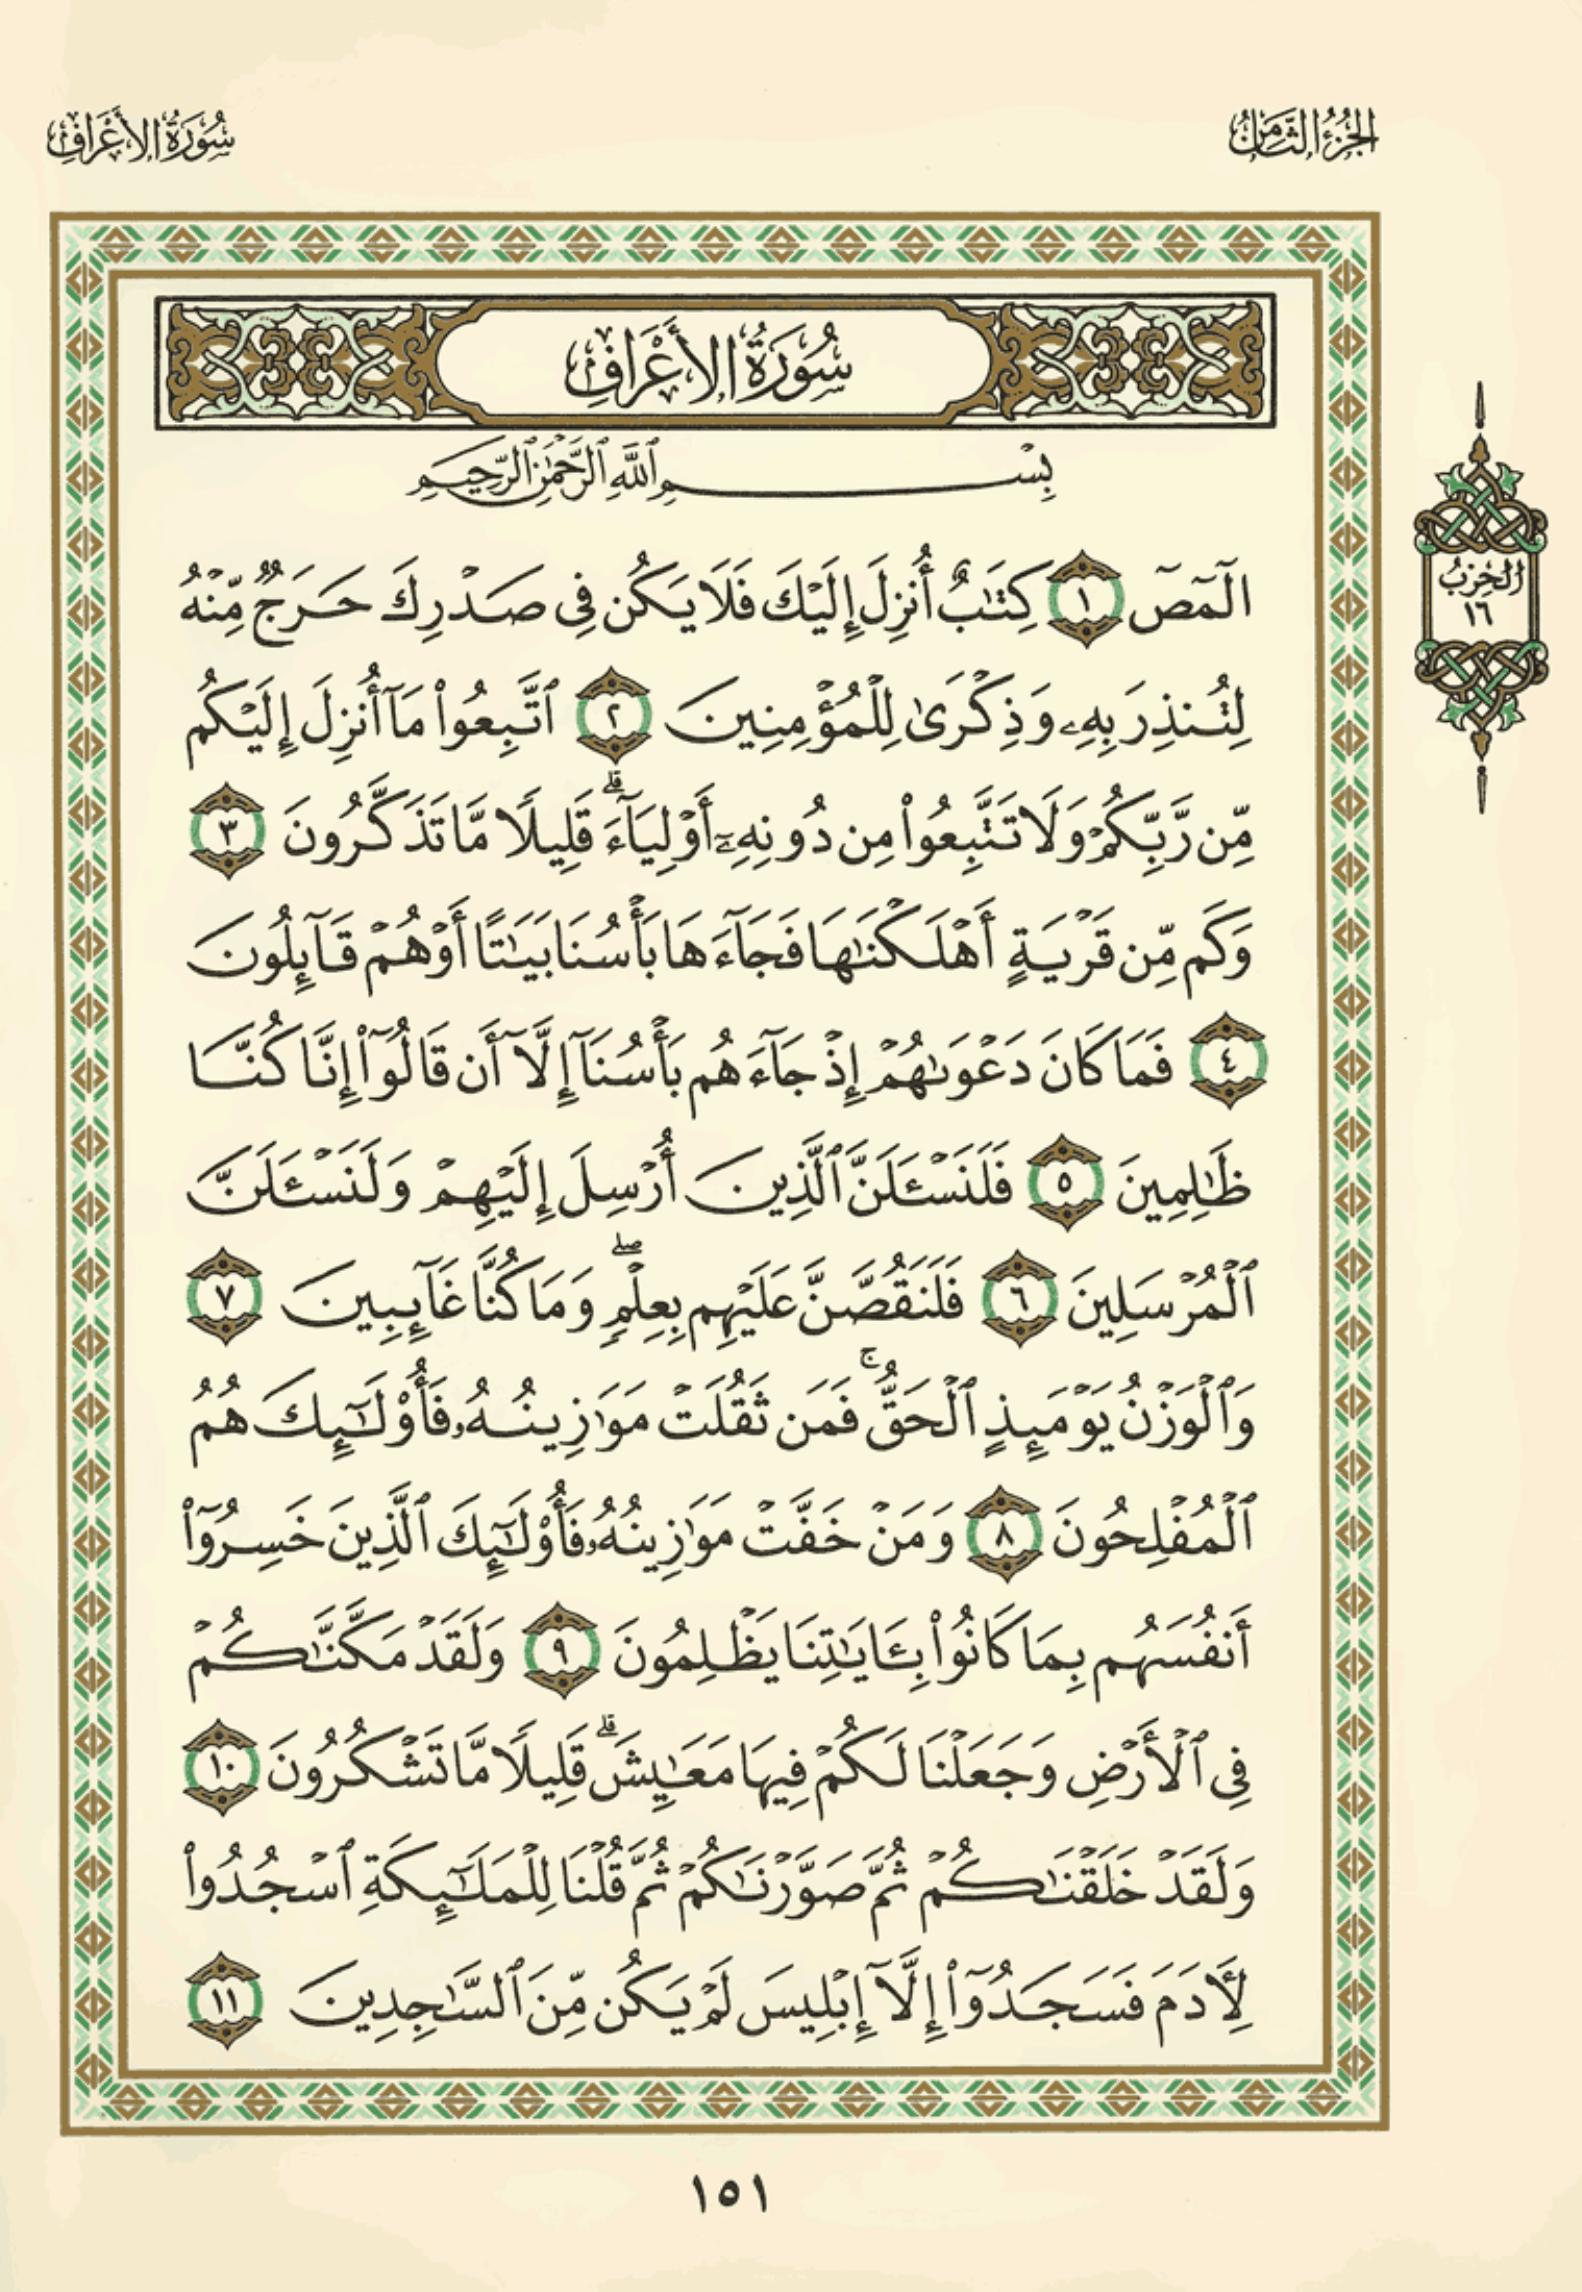 الجُزْءُ الثَّامِنُ
سُورَةُ الأَعْرَافِ
سُورَةُ الأَعْرَافِ
بِسْمِ ٱللَّهِ ٱلرَّحْمَٰنِ ٱلرَّحِيمِ
الٓمٓصٓ ١ كِتَٰبٌ أُنزِلَ إِلَيْكَ فَلَا يَكُن فِى صَدْرِكَ حَرَجٌ مِّنْهُ
لِتُنذِرَ بِهِۦ وَذِكْرَىٰ لِلْمُؤْمِنِينَ ٢ ٱتَّبِعُوا۟ مَآ أُنزِلَ إِلَيْكُم
مِّن رَّبِّكُمْ وَلَا تَتَّبِعُوا۟ مِن دُونِهِۦٓ أَوْلِيَآءَ ۗ قَلِيلًا مَّا تَذَكَّرُونَ ٣
وَكَم مِّن قَرْيَةٍ أَهْلَكْنَٰهَا فَجَآءَهَا بَأْسُنَا بَيَٰتًا أَوْ هُمْ قَآئِلُونَ
٤ فَمَا كَانَ دَعْوَىٰهُمْ إِذْ جَآءَهُم بَأْسُنَآ إِلَّآ أَن قَالُوٓا۟ إِنَّا كُنَّا
ظَٰلِمِينَ ٥ فَلَنَسْـَٔلَنَّ ٱلَّذِينَ أُرْسِلَ إِلَيْهِمْ وَلَنَسْـَٔلَنَّ
ٱلْمُرْسَلِينَ ٦ فَلَنَقُصَّنَّ عَلَيْهِم بِعِلْمٍ ۖ وَمَا كُنَّا غَآئِبِينَ ٧
وَٱلْوَزْنُ يَوْمَئِذٍ ٱلْحَقُّ ۚ فَمَن ثَقُلَتْ مَوَٰزِينُهُۥ فَأُو۟لَٰٓئِكَ هُمُ
ٱلْمُفْلِحُونَ ٨ وَمَنْ خَفَّتْ مَوَٰزِينُهُۥ فَأُو۟لَٰٓئِكَ ٱلَّذِينَ خَسِرُوٓا۟
أَنفُسَهُم بِمَا كَانُوا۟ بِـَٔايَٰتِنَا يَظْلِمُونَ ٩ وَلَقَدْ مَكَّنَّٰكُمْ
فِى ٱلْأَرْضِ وَجَعَلْنَا لَكُمْ فِيهَا مَعَٰيِشَ ۗ قَلِيلًا مَّا تَشْكُرُونَ ١٠
وَلَقَدْ خَلَقْنَٰكُمْ ثُمَّ صَوَّرْنَٰكُمْ ثُمَّ قُلْنَا لِلْمَلَٰٓئِكَةِ ٱسْجُدُوا۟
لِءَادَمَ فَسَجَدُوٓا۟ إِلَّآ إِبْلِيسَ لَمْ يَكُن مِّنَ ٱلسَّٰجِدِينَ ١١
الحِزْبُ
١٦
١٥١